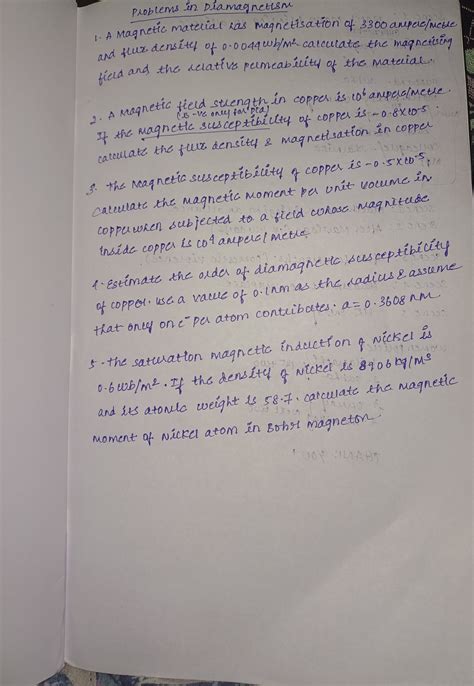 Problems in Diamagnetism
1. A Magnetic material has magnetisation of 3300 ampere/metre
and flux density of 0.0044 wb/m² calculate the magnetising
field and the relative permeability of the material.
2. A Magnetic field strength in copper is 10⁶ ampere/metre.
(is -ve only for dia)
If the magnetic susceptibility of copper is -0.8x10⁻⁵.
calculate the flux density & magnetisation in copper
3. The Magnetic susceptibility of copper is -0.5x10⁻⁵.
calculate the magnetic moment per unit volume in
copper when subjected to a field whose magnitude
inside copper is 10⁴ ampere/metre
4. Estimate the order of diamagnetic susceptibility
of copper. use a value of 0.1nm as the radius & assume
that only one e⁻ per atom contributes. a=0.3608 nm.
5. The saturation magnetic induction of Nickel is
0.6wb/m². If the density of Nickel is 8906kg/m³
and its atomic weight is 58.7. calculate the magnetic
moment of Nickel atom in Bohr magneton.